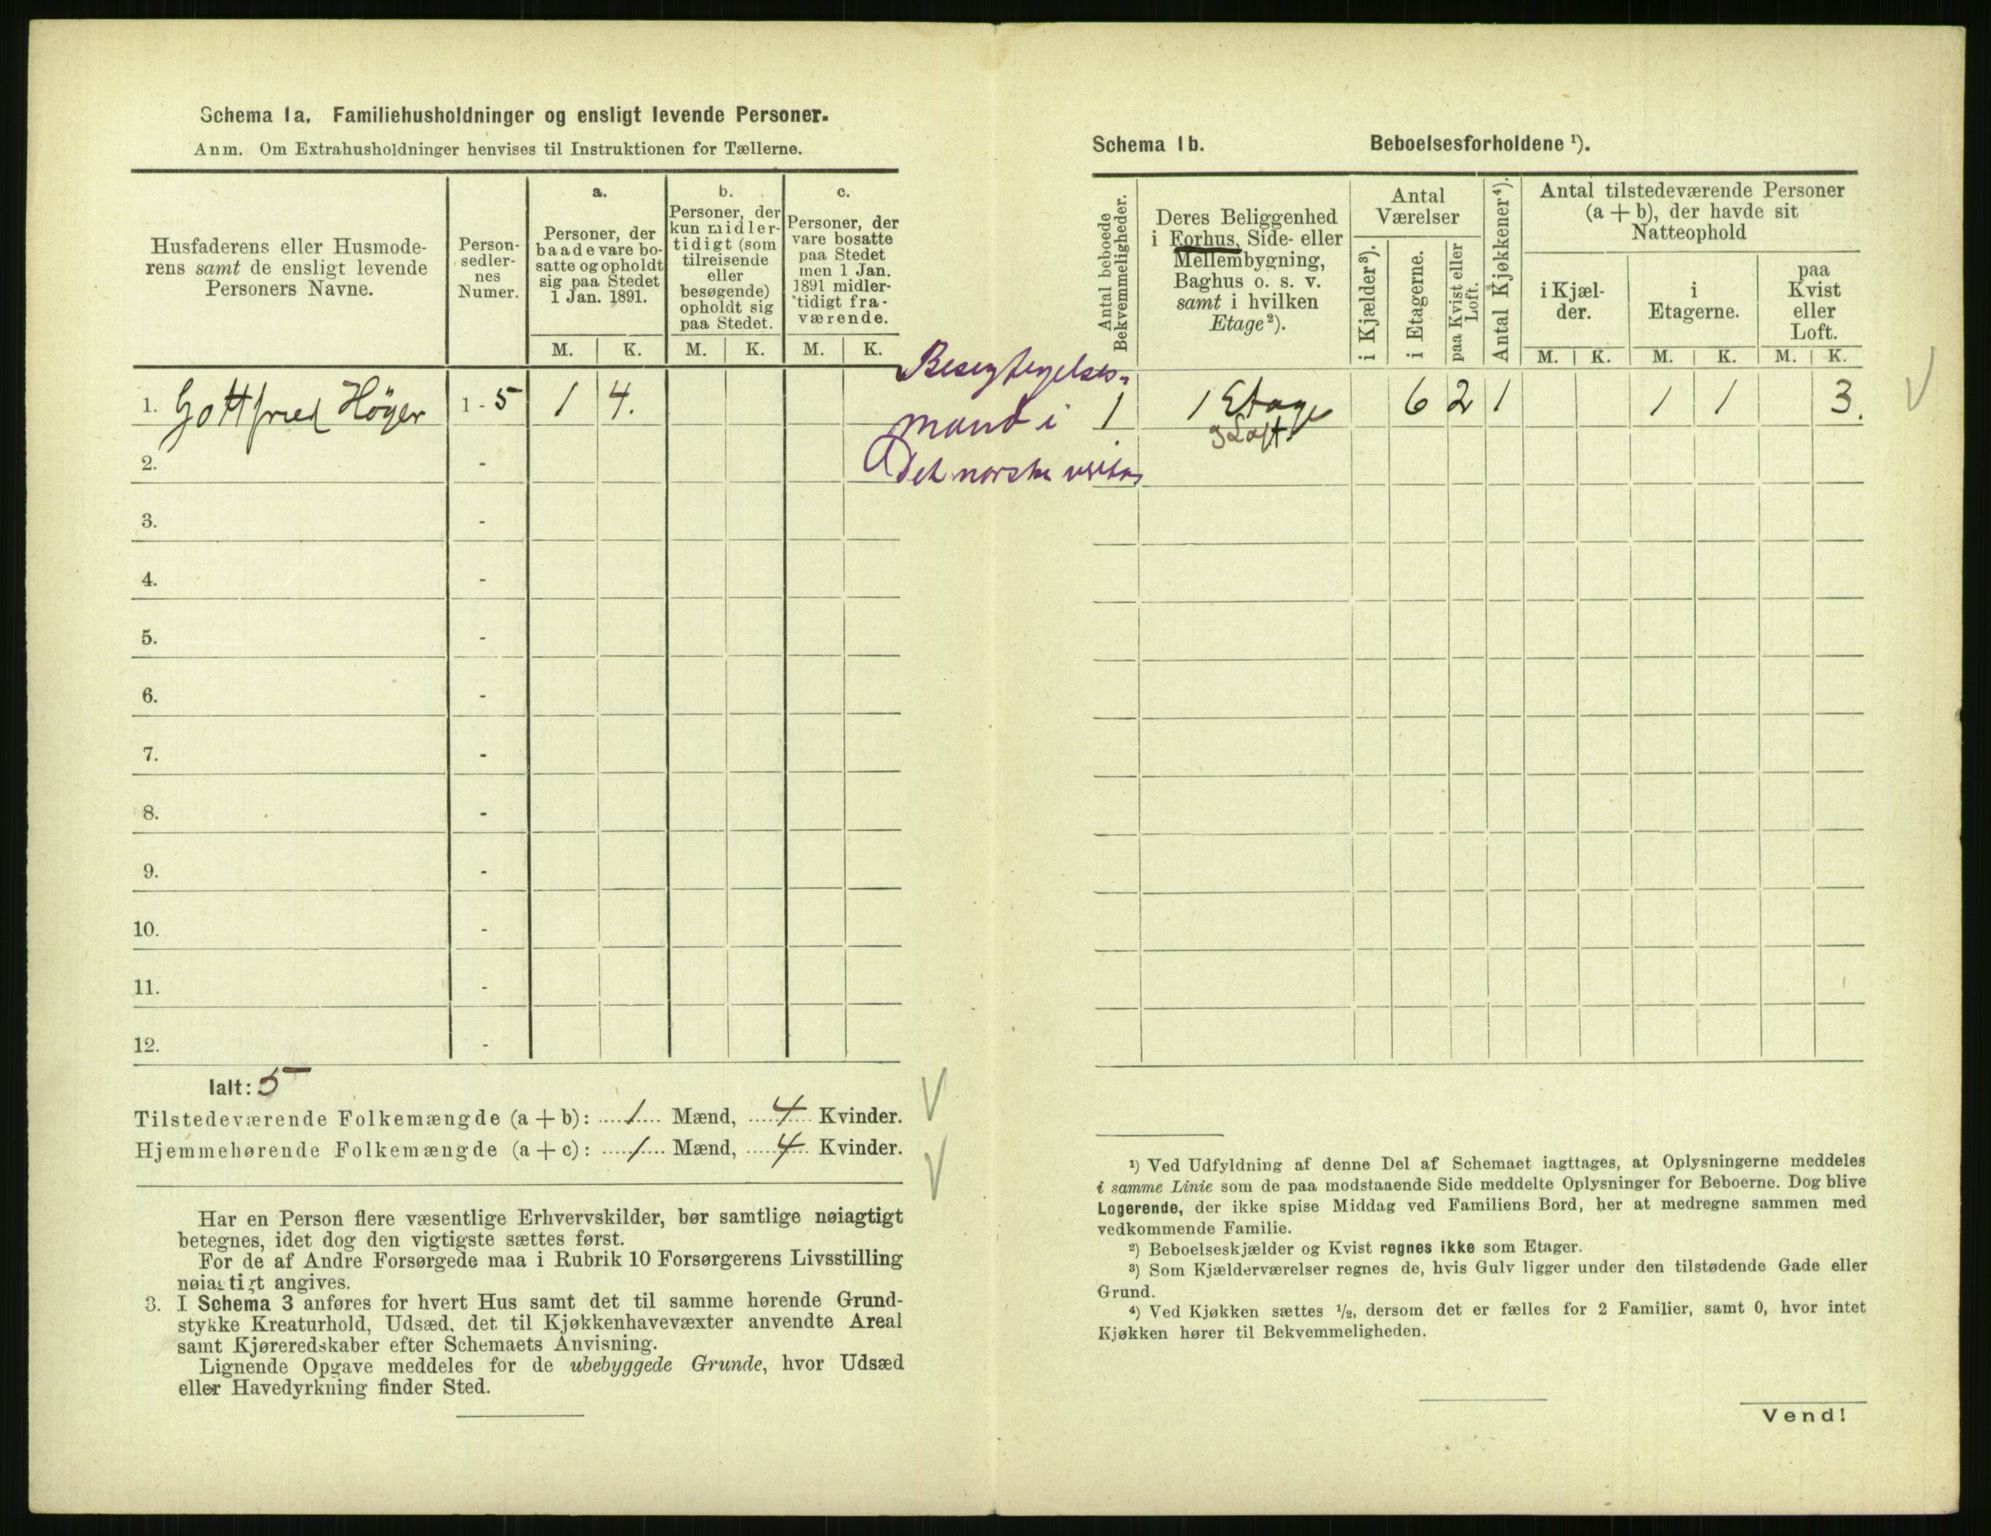 Schema 1a. Familiehusholdninger og ensligt levende Personer.
Anm. Om Extrahusholdninger henvises til Instruktionen for Tællerne.
Husfaderens eller Husmode-
rens samt de ensligt levende
Personers Navne.
Person-
sedler-
nes
Numer.
a.
Personer, der
baade vare bo-
satte og opholdt
sig paa Stedet
1 Jan. 1891.
b.
Personer, der
kun midler-
tidigt (som
tilreisende
eller
besøgende)
opholdt sig
paa Stedet.
c.
Personer, der
vare bosatte
paa Stedet
men 1 Jan.
1891 midler-
tidigt fra-
værende.
M. K. M. K. M. K.
1. Gottfried Höyer 1 - 5 1 4.
2. -
3. -
4. -
5. -
6. -
7. -
8. -
9. -
10. -
11. -
12. -
Ialt: 5
Tilstedeværende Folkemængde (a + b): 1 Mænd, 4 Kvinder.
Hjemmehørende Folkemængde (a + c): 1 Mænd, 4 Kvinder.
Har en Person flere væsentlige Erhvervskilder, bør samtlige nøiagtigt
betegnes, idet dog den vigtigste sættes først.
For de af Andre Forsørgede maa i Rubrik 10 Forsørgerens Livsstilling
nøiagtigt angives.
3. I Schema 3 anføres for hvert Hus samt det til samme hørende Grund-
stykke Kreaturhold, Udsæd, det til Kjøkkenhavevæxter anvendte Areal
samt Kjøreredskaber efter Schemaets Anvisning.
Lignende Opgave meddeles for de ubebyggede Grunde, hvor Udsæd
eller Havedyrkning finder Sted.
mand i
Det norske
Schema 1b. Beboelsesforholdene ¹).
Antal beboede
Bekvemmeligheder.
Deres Beliggenhed
i Forhus, Side- eller
Mellembygning,
Baghus o. s. v.
samt i hvilken
Etage ²).
Antal
Værelser
i Kjælder ³).
i Etagerne.
paa Kvist eller
Loft.
Antal Kjøkkener ⁴).
Antal tilstedeværende Personer
(a + b), der havde sit
Natteophold
i Kjæl-
der.
i
Etagerne.
paa
Kvist
eller
Loft.
M. K. M. K. M. K.
1 1 Etage 6 2 1 1 1 3.
g Loft
¹) Ved Udfyldning af denne Del af Schemaet iagttages, at Oplysningerne meddeles
i samme Linie som de paa modstaaende Side meddelte Oplysninger for Beboerne. Dog blive
Logerende, der ikke spise Middag ved Familiens Bord, her at medregne sammen med
vedkommende Familie.
²) Beboelseskjælder og Kvist regnes ikke som Etager.
³) Som Kjælderværelser regnes de, hvis Gulv ligger under den tilstødende Gade eller
Grund.
⁴) Ved Kjøkken sættes ½, dersom det er fælles for 2 Familier, samt 0, hvor intet
Kjøkken hører til Bekvemmeligheden.
Vend!